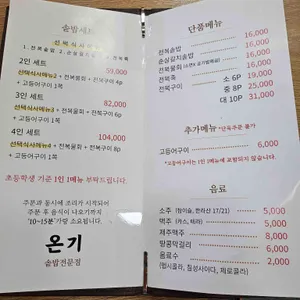 솥밥세트
선택식사메뉴
1. 전복솥밥 2.
2인 세트
59,000
선택식사메뉴2 + 전복물회 + 전복구이 6p
+ 고등어구이 1쪽
3인 세트
82,000
선택식사메뉴3 + 전복물회 + 전복구이 6p
+ 고등어구이 1쪽
4인 세트
104,000
선택식사메뉴4 + 전복물회 + 전복구이 8p
+ 고등어구이 1쪽
초등학생 기준 1인 1메뉴 부탁드립니다.
주문과 동시에 조리가 시작되어
주문 후 음식이 나오기까지
'10~15분'가량 소요됩니다.
온기
솥밥전문점
단품메뉴
전복솥밥 16,000
순살갈치솥밥 16,000
전복물회 16,000
전복죽 16,000
전복구이 소 6P 19,000
중 8P 25,000
대 10P 31,000
추가메뉴 *단독주문 불가
고등어구이 6,000
*고등어구이는 1인 1메뉴에 포함되지 않습니다.
음료
소주 (참이슬, 한라산 17/21) 5,000
맥주 (카스, 테라) 5,000
제주맥주 8,000
땅콩막걸리 6,000
음료수 2,000
(펩시콜라, 칠성사이다, 제로콜라)